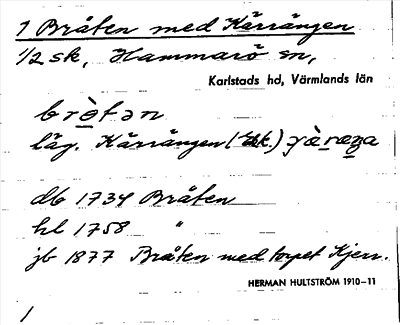 1 Bråten med Kärrängen
1/2 sk, Hammarö sn,
Karlstads hd, Värmlands län
bròtən
läg. Kärrängen
db 1734 Bråten
hl 1758 "
jb 1877 Bråten med torpet Kjerr.
HERMAN HULTSTRÖM 1910–11
1